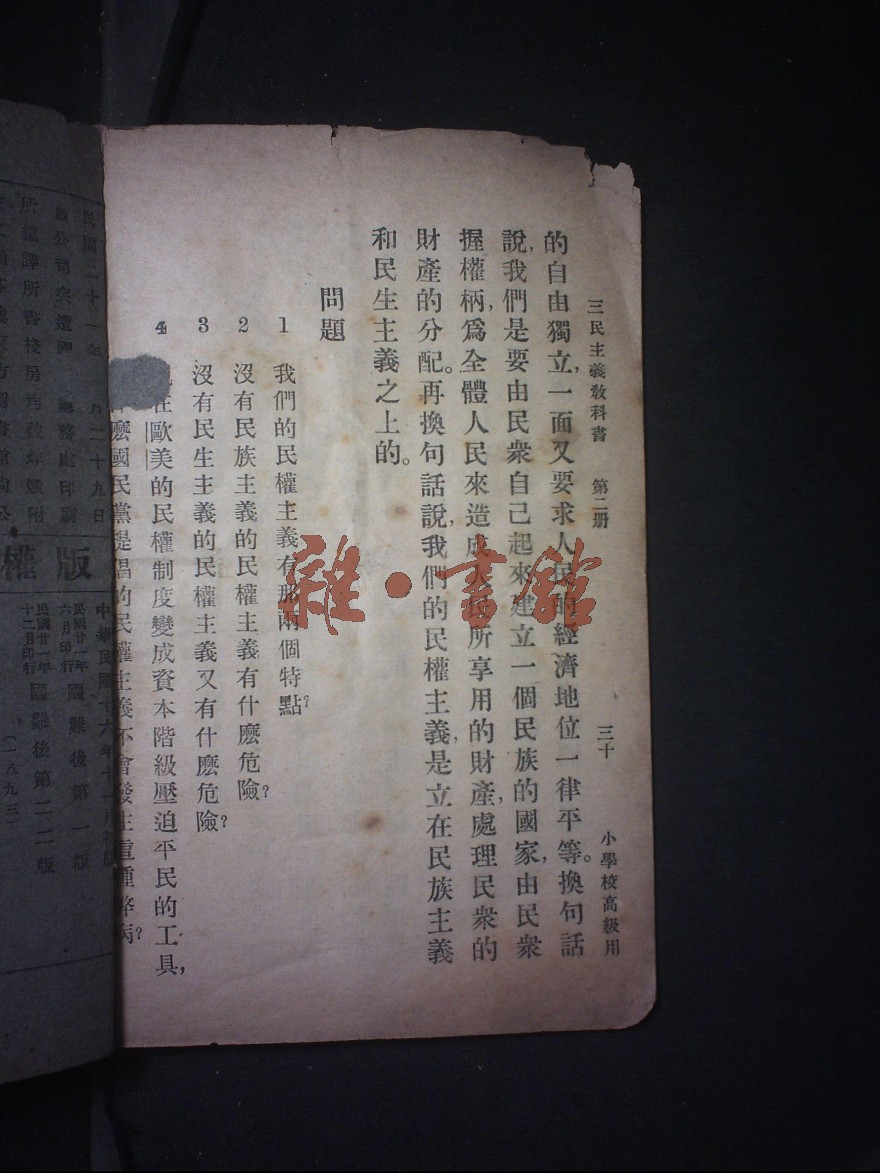 三民主義教科書 第二册 三十 小學校高級用
的自由獨立,一面又要求人民的經濟地位一律平等。換句話
說,我們是要由民衆自己起來建立一個民族的國家,由民衆
握權柄,爲全體人民來造成人民所享用的財產,處理民衆的
財產的分配。再換句話說,我們的民權主義,是立在民族主義
和民生主義之上的。
問題
1 我們的民權主義有那兩個特點?
2 沒有民族主義的民權主義有什麽危險?
3 沒有民生主義的民權主義又有什麽危險?
4 在歐美的民權制度變成資本階級壓迫平民的工具,
麽國民黨提倡的民權主義不會發生這種弊病?
雜·書館
民國二十一年 月二十九日
敝公司突遭國 總務處印刷
所編譯所書棧房均被炸燬附
版權
中華民國十六年十一月初版
民國廿一年六月印行 國難後第一版
民國廿一年十二月印行 國難後第二二版
(一八九三)